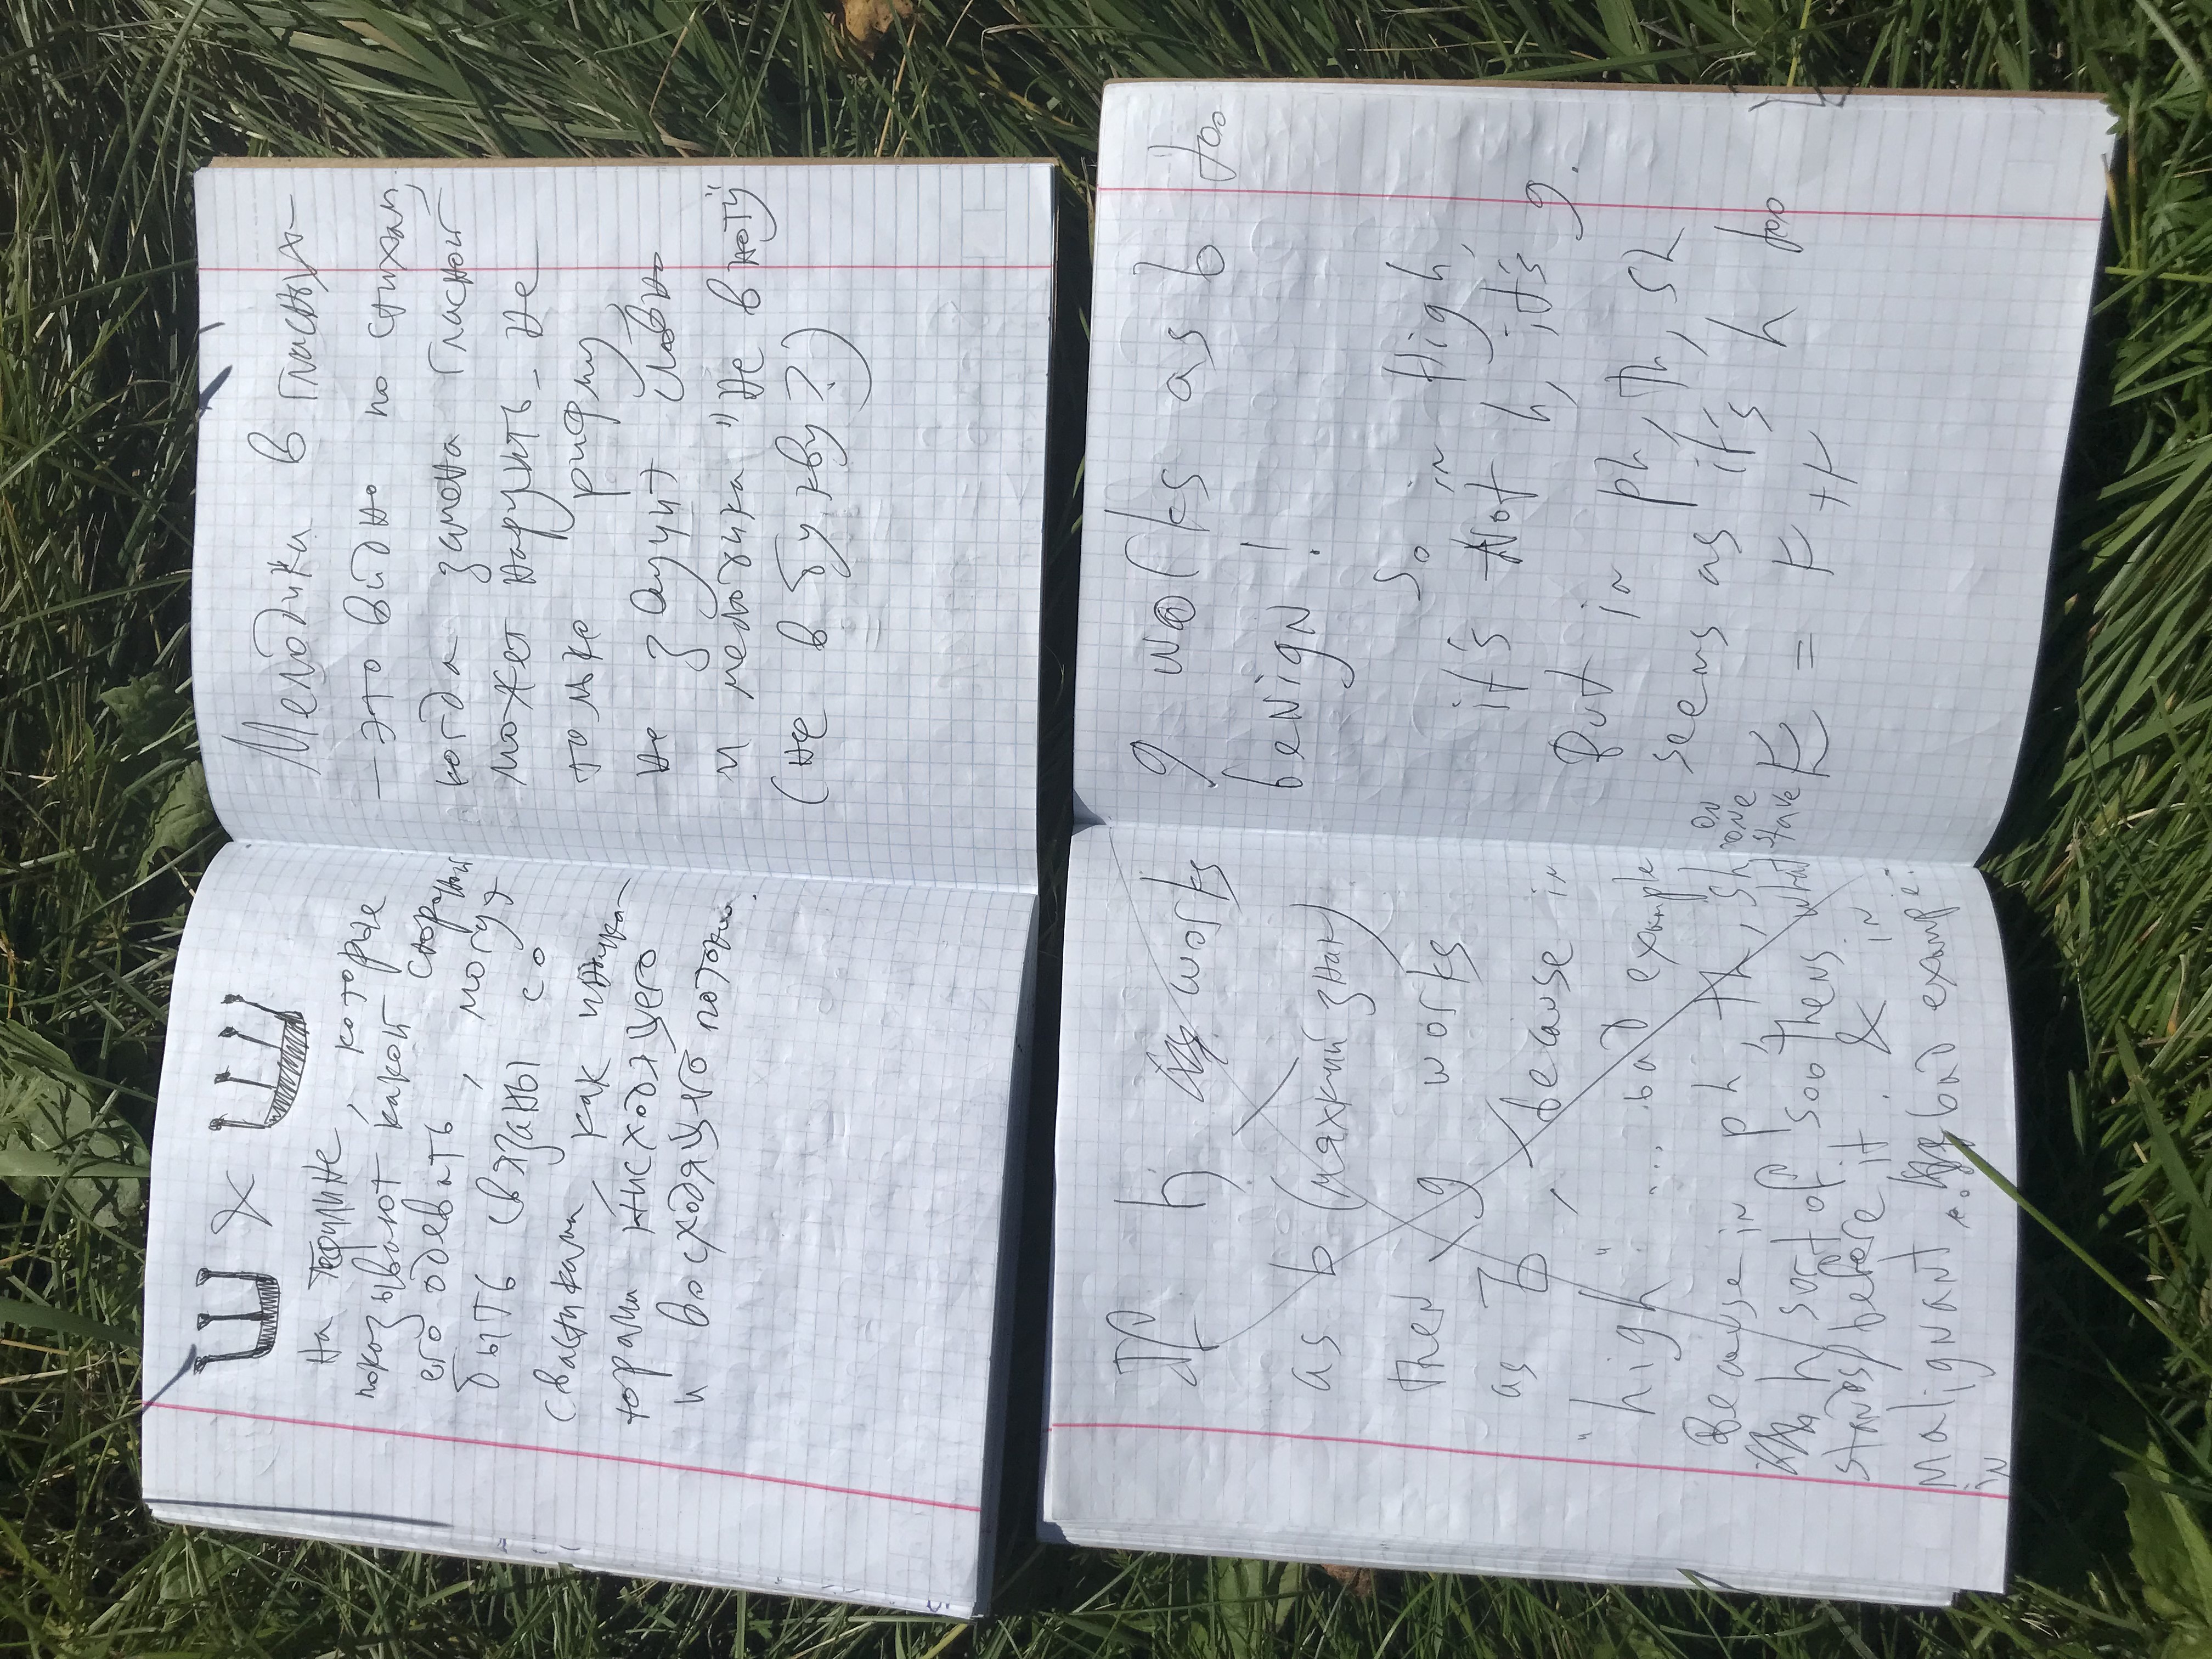 ש &
на тфилине, которые
показывают какой стороной
его одевать, могут
быть связаны со
свастиками, как индика-
торами нисходящего
и восходящего потоков.
Мелодика в гласных -
- это видно по стихам,
когда замена гласной
может нарушить не
только рифму,
не звучит словно
и мелодика "не в ноту"
(не в букву?)
If h works
as ь (мяхкий знак)
then g works
as Ъ, because in
"high" ... bad example
Because in ph, th, sh
h sort of soothens what
stands before it. & in
malignant... bad example:
in
g works as ь too
benign!
So in High,
it's Not h, it's g.
But in ph, th, sh
seems as it's h too
on
one
stave
= +